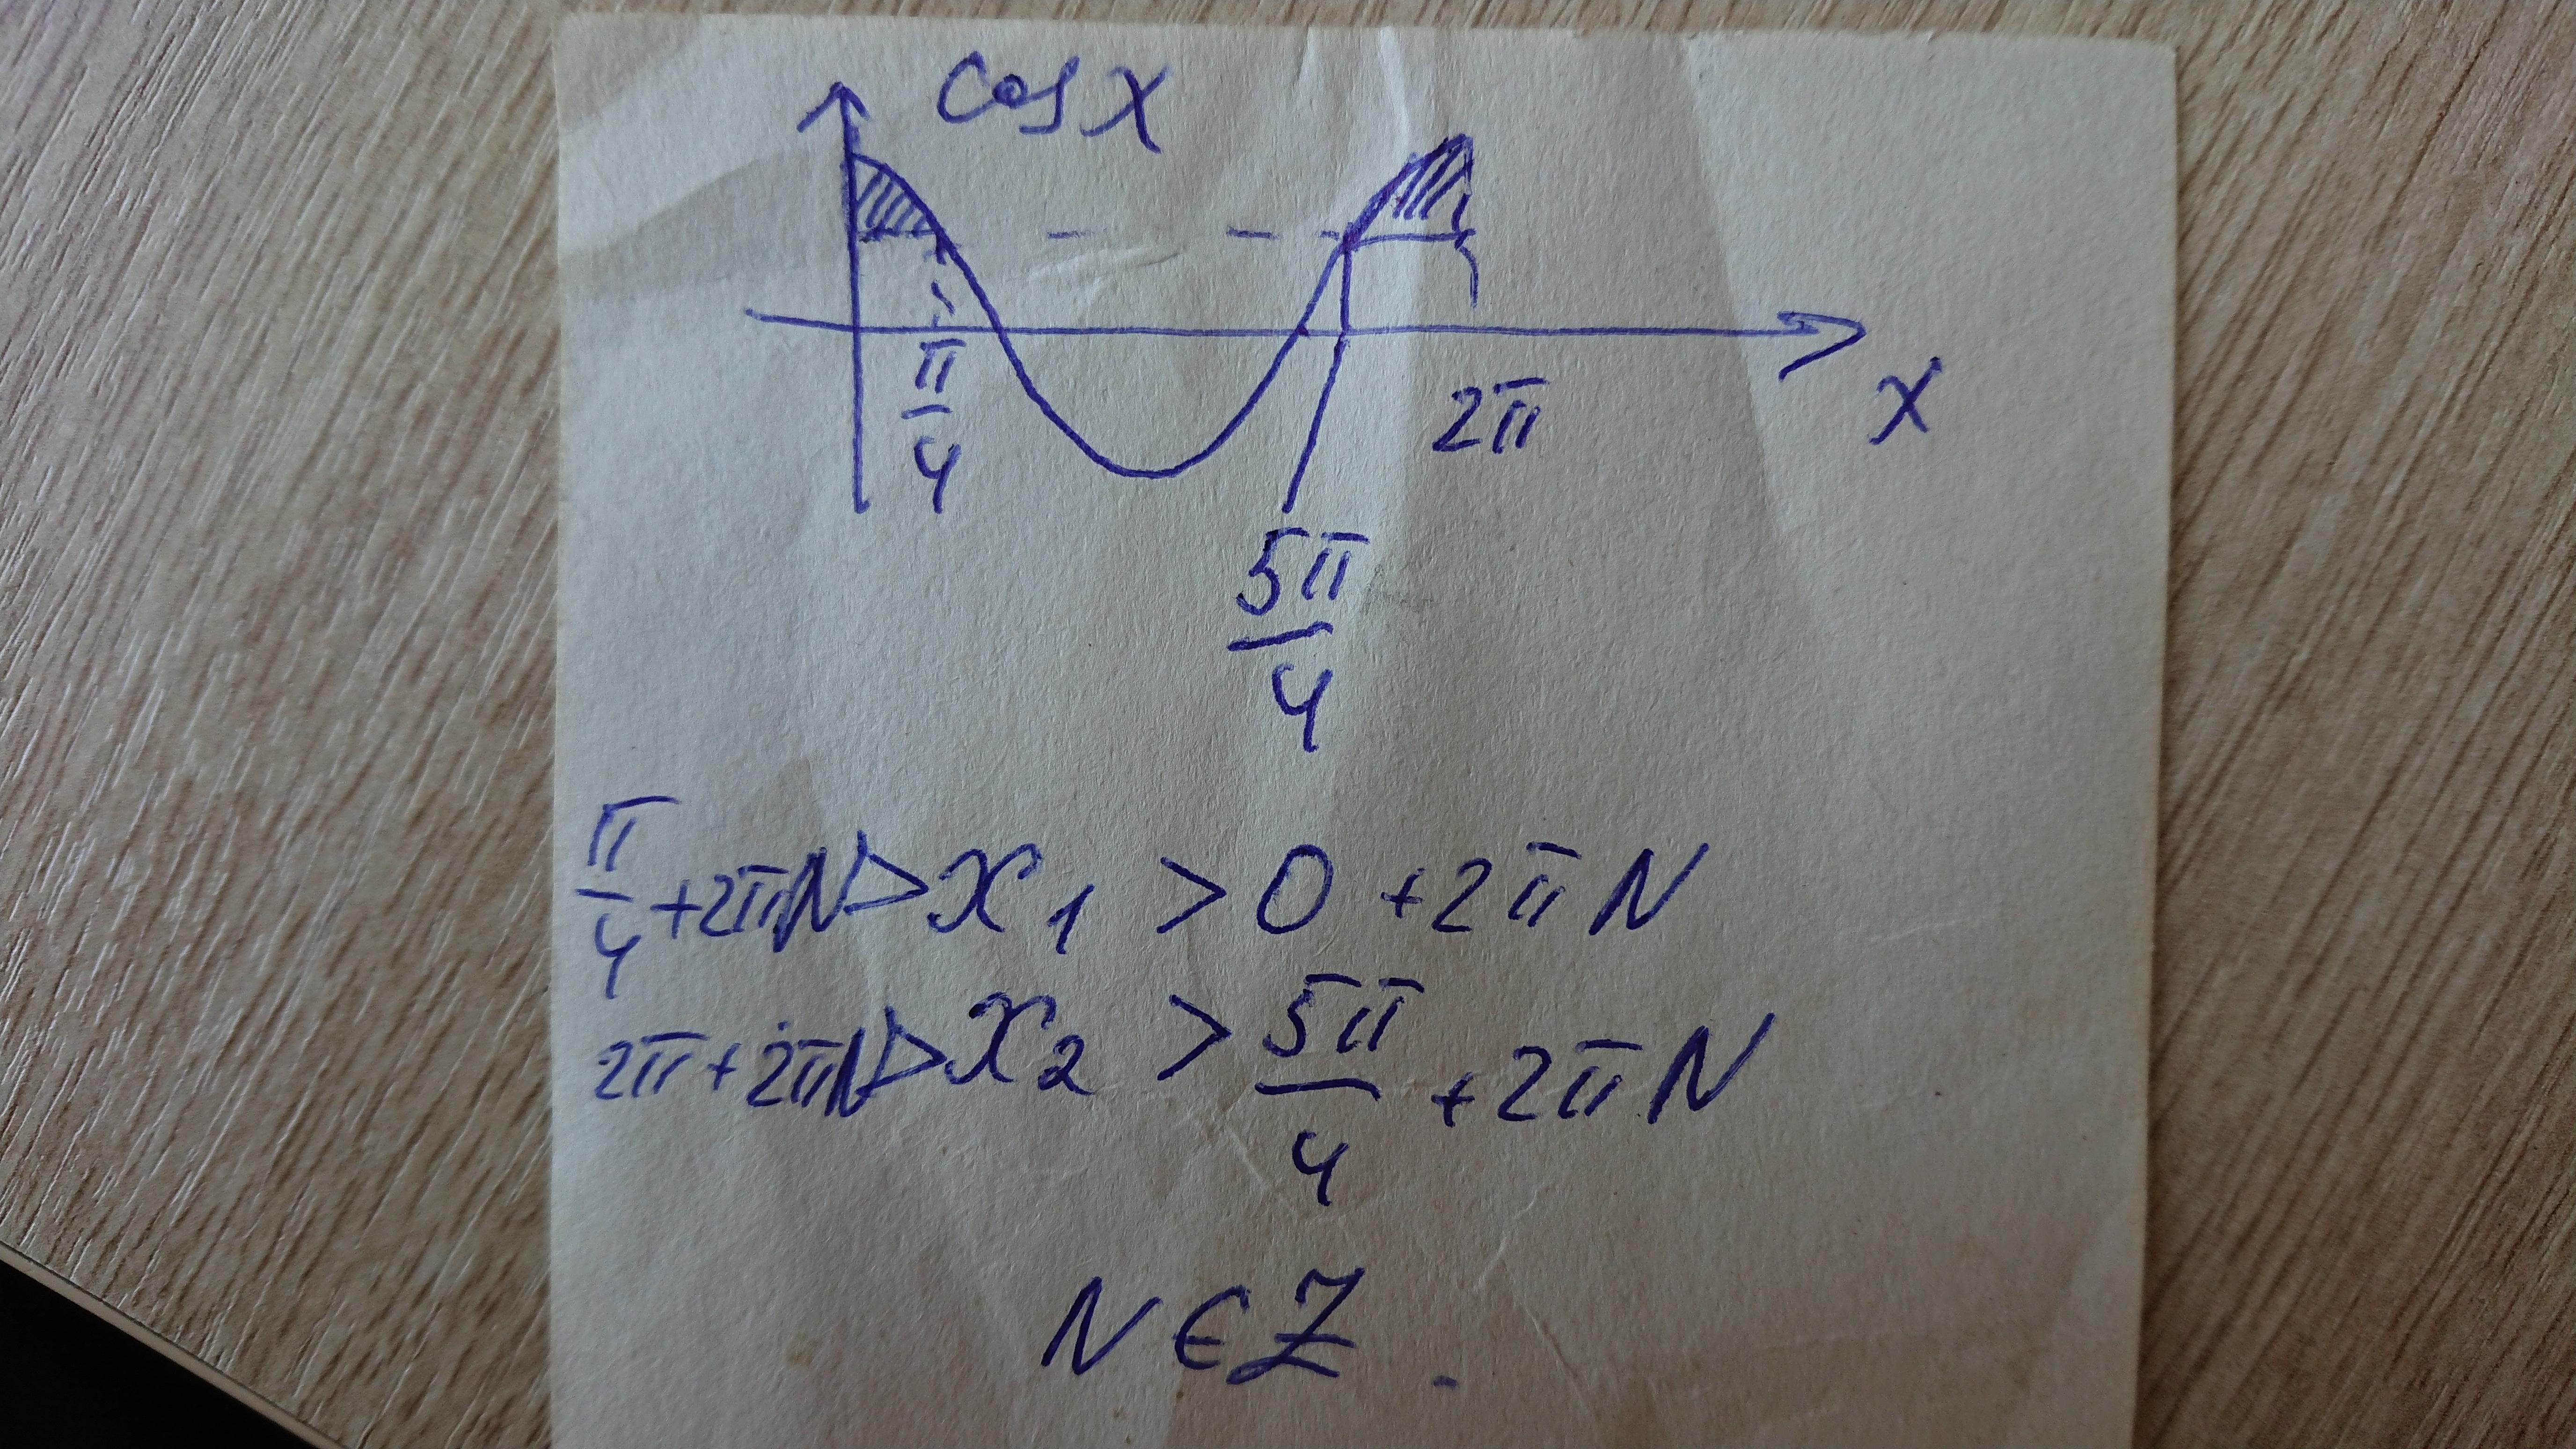 cos x
π/4
2π
x
5π/4
π/4 + 2πN > x₁ > 0 + 2πN
2π + 2πN > x₂ > 5π/4 + 2πN
N ∈ Z.